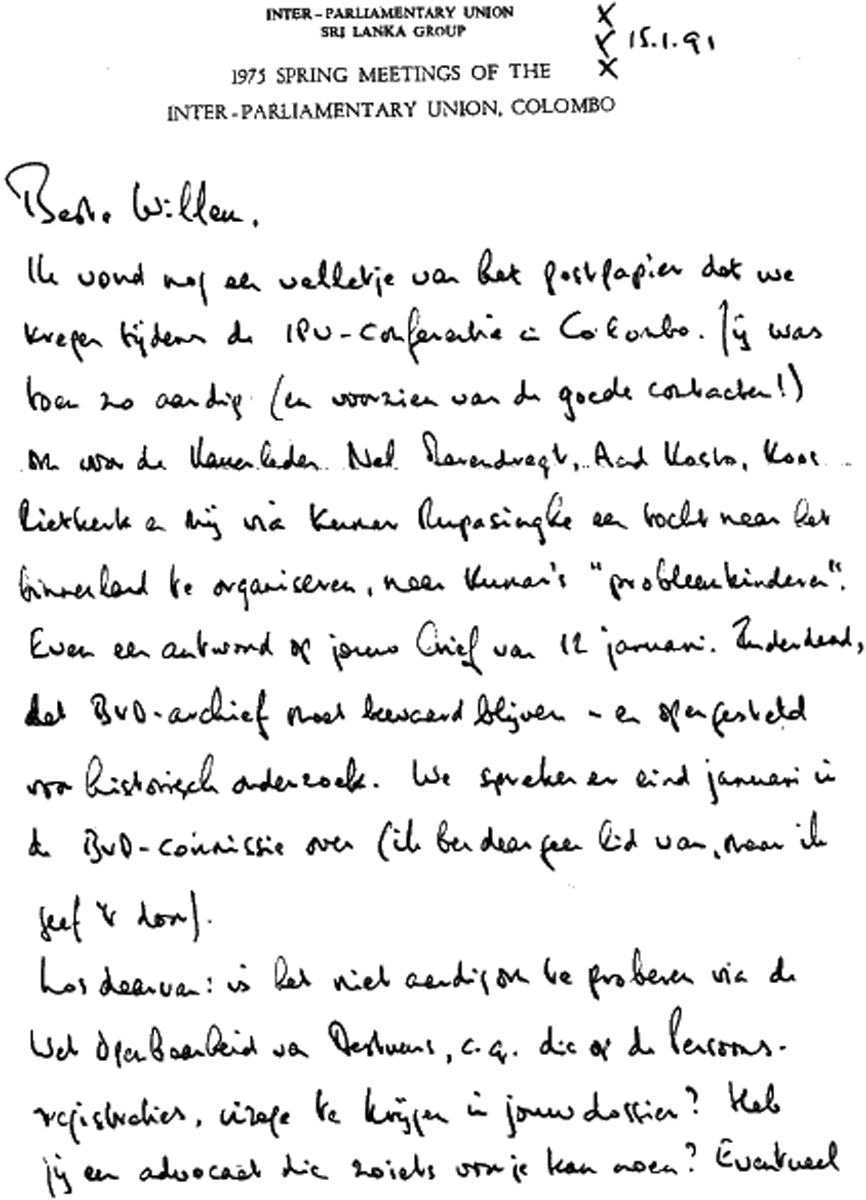 INTER-PARLIAMENTARY UNION
SRI LANKA GROUP
15.1.91
1975 SPRING MEETINGS OF THE
INTER-PARLIAMENTARY UNION, COLOMBO
Beste Willem,
Ik vond nog een velletje van het postpapier dat we
kregen tijdens de IPU-Conferentie in Colombo. Jij was
toen zo aardig (en voorzien van de goede contacten!)
om voor de Kamerleden Nel Barendregt, Aad Kosto, Koos
Rietkerk en mij via Kumar Rupasinghe een tocht naar het
binnenland te organiseren, naar Kumar's "probleemkinderen".
Even een antwoord op jouw brief van 12 januari. Inderdaad,
dat BVD-archief moet bewaard blijven - en opengesteld
voor historisch onderzoek. We spreken er eind januari in
de BVD-commissie over (ik ben daar geen lid van, maar ik
geef 't door).
Los daarvan: is het niet aardig om te proberen via de
Wet Openbaarheid van Bestuur, c.q. die op de Persoons-
registraties, inzage te krijgen in jouw dossier? Heb
jij een advocaat die zoiets voor je kan doen? Eventueel